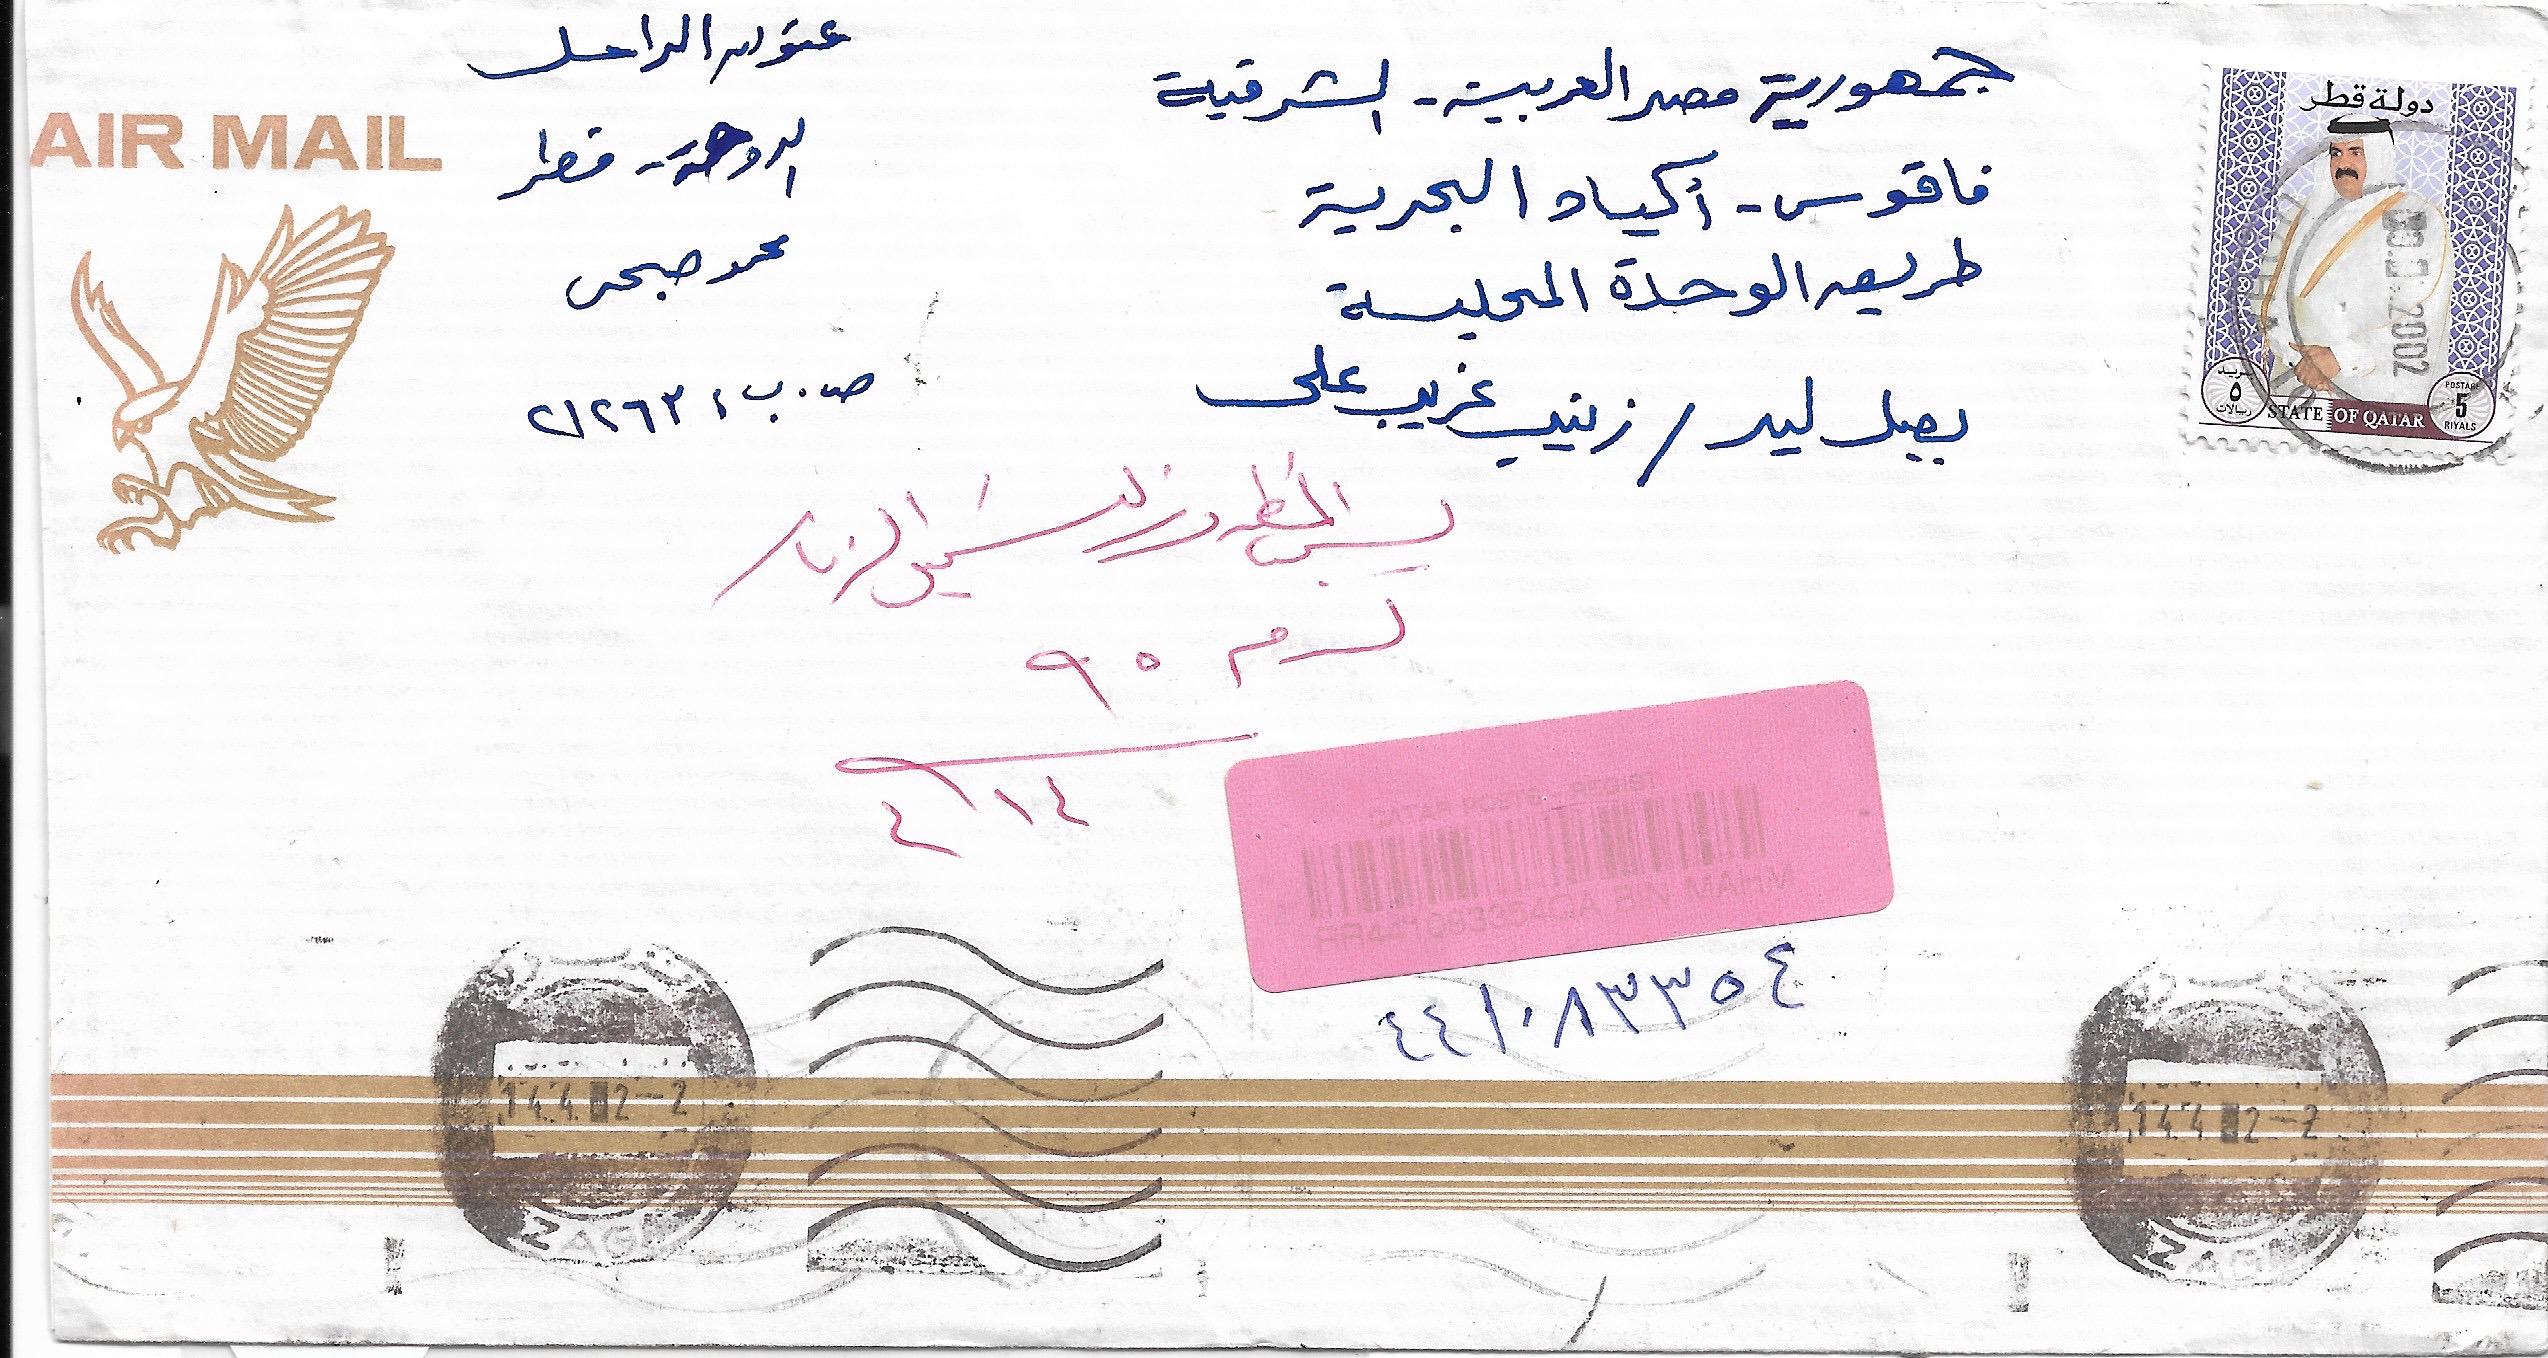 عنوان الراحل
الدوحة - قطر
محمد صبحى
ص.ب: ٢١٢٦٣
جمهورية مصر العربية - الشرقية
فاقوس - أكياد البحرية
طريق الوحدة المحلية
يصل ليد / زينب غريب على
AIR MAIL
دولة قطر
2002
بريد
٥
ريالات
STATE OF QATAR
POSTAGE
5
RIYALS
٩٥
١٤
٤
QATAR POSTS - REGIST
BIN MAHM
٤٤١٠٨٣٣٥٤
14.4 2-2
ZAG
14.4 2-2
ZAG